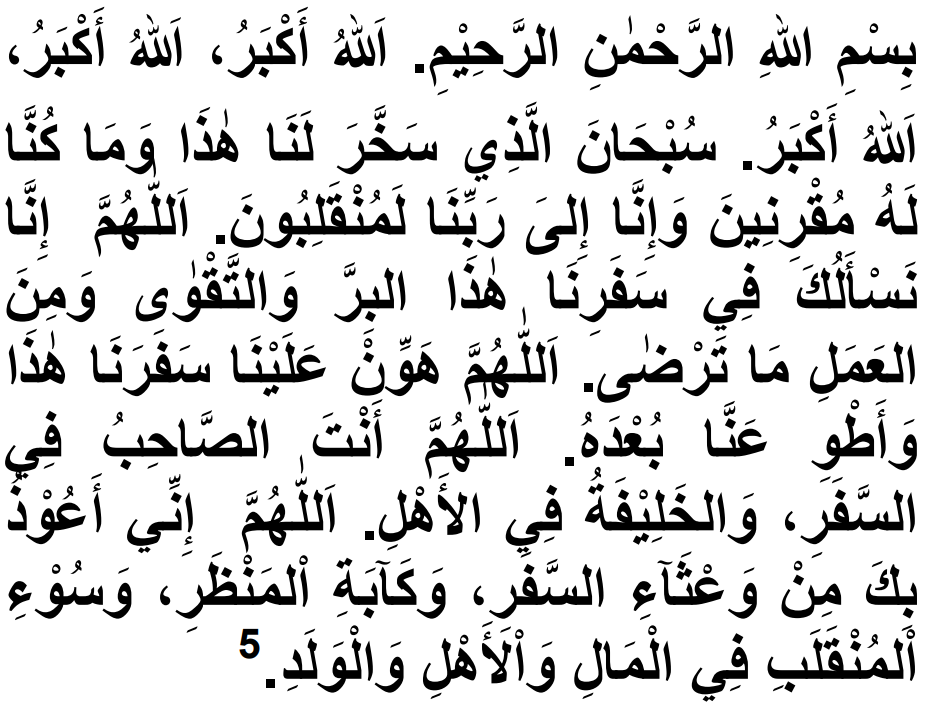 بِسْمِ اللهِ الرَّحْمٰنِ الرَّحِيْمِ. اَللهُ أَكْبَرُ، اَللهُ أَكْبَرُ،
اَللهُ أَكْبَرُ. سُبْحَانَ الَّذِي سَخَّرَ لَنَا هٰذَا وَمَا كُنَّا
لَهُ مُقْرِنِينَ وَإِنَّا إِلىَ رَبِّنَا لَمُنْقَلِبُونَ. اَللّٰهُمَّ إِنَّا
نَسْأَلُكَ فِي سَفَرِنَا هٰذَا البرَّ وَالتَّقْوٰى وَمِنَ
العَمَلِ مَا تَرْضٰى. اَللّٰهُمَّ هَوِّنْ عَلَيْنَا سَفَرَنَا هٰذَا
وَأَطْوِ عَنَّا بُعْدَهُ. اَللّٰهُمَّ أَنْتَ الصَّاحِبُ فِي
السَّفَرِ، وَالخَلِيْفَةُ فِي الأَهْلِ. اَللّٰهُمَّ إِنِّي أَعُوْذُ
بِكَ مِنْ وَعْثَآءِ السَّفَرِ، وَكَآبَةِ اْلمَنْظَرِ، وَسُوْءِ
اْلمُنْقَلَبِ فِي الْمَالِ وَاْلأَهْلِ وَالْوَلَدِ. 5